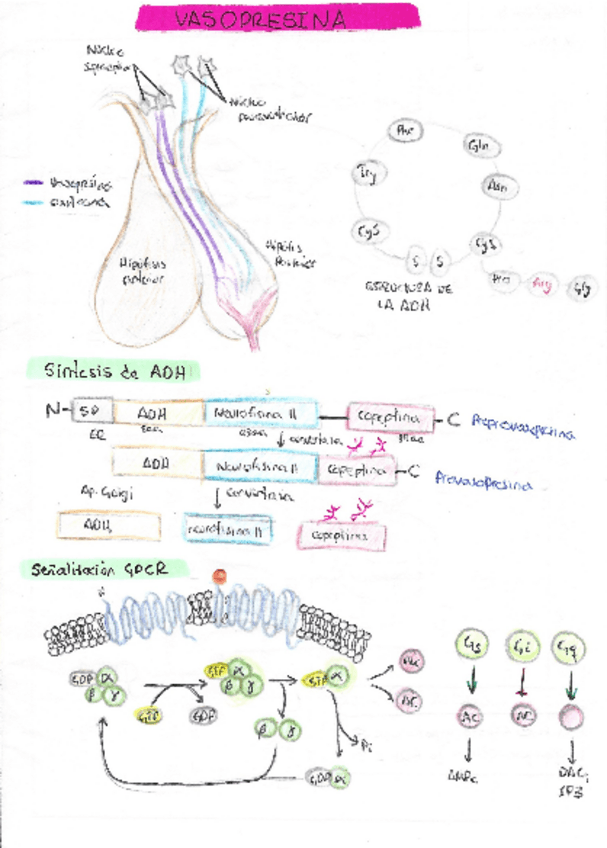 VASOPRESINA
Núcleo
supraóptico
Núcleo
paraventricular
Vasopresina
oxitocina
Hipófisis
anterior
Hipófisis
Posterior
Phe
Gln
Asn
Cys
Pro
Arg
Gly
S
S
Cys
Try
ESTRUCTURA DE
LA ADH
Síntesis de ADH
N- SP ADH Neurofisina II copeptina C Preprovasopresina
ER
convertasa
ADH Neurofisina II copeptina C Provasopresina
Ap. Golgi
convertasa
ADH neurofisina II copeptina
Señalización GPCR
GDP α
β γ
GTP
GDP
GTP α
β γ
β γ
GTP α
Pi
GDP α
Gs
Gi
Gq
AC
AC
AMPc
DAG,
IP3